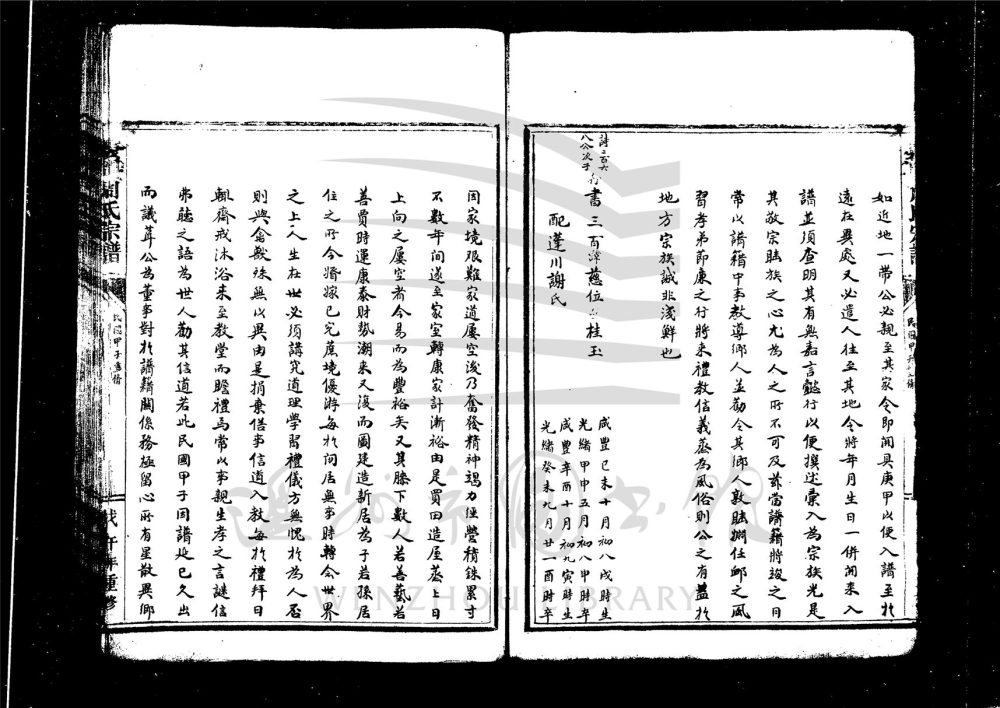 如近地一帶公必親至其家令即開具庚甲以便入譜至於
遠在異處又必遣人往至其地令將年月生日一併開來入
譜並項查明其有無嘉言懿行以便撰述彙入為宗族光是
其敬宗睦族之心尤為人之所不可及茲當譜籍將竣之日
常以譜籍中事教導鄉人並勸令其鄉人敦睦婣任卹之風
習孝弟節廉之行將來禮教信義蒸為風俗則公之有益於
地方宗族誠非淺鮮也
詩二百六
八公次子
書三百潭 慈位 桂玉
咸豐己未十月初八戌時生
光緒甲申五月初八甲時卒
配蓬川謝氏
咸豐辛酉十月初九寅時生
光緒癸未九月廿一酉時卒
因家境艱難家道屢空浚乃奮發精神竭力經營積銖累寸
不數年間遂至家室轉康家計漸裕由是買田造屋蒸上日
上向之屢空者今易而為豐裕矣又其膝下數人若善藝若
善賈時運康泰財勢潮來又復而圖建造新居為子若孫居
住之所今婚嫁已完蔗境優游每於閒居無事時轉念世界
之上人生在世必須講究道理學習禮儀方無愧於為人否
則與禽獸殊無以異由是捐棄俗事信道入教每於禮拜日
輒齋戒沐浴來至教堂而瞻禮焉常以事親生孝之言謎信
弗聽之語為世人勸其信道若此民國甲子因譜延已久出
而議葺公為董事對於譜籍關係務極留心所有星散異鄉
氏宗譜
民國甲子重修
戊午年重修
WENZHOU LIBRARY